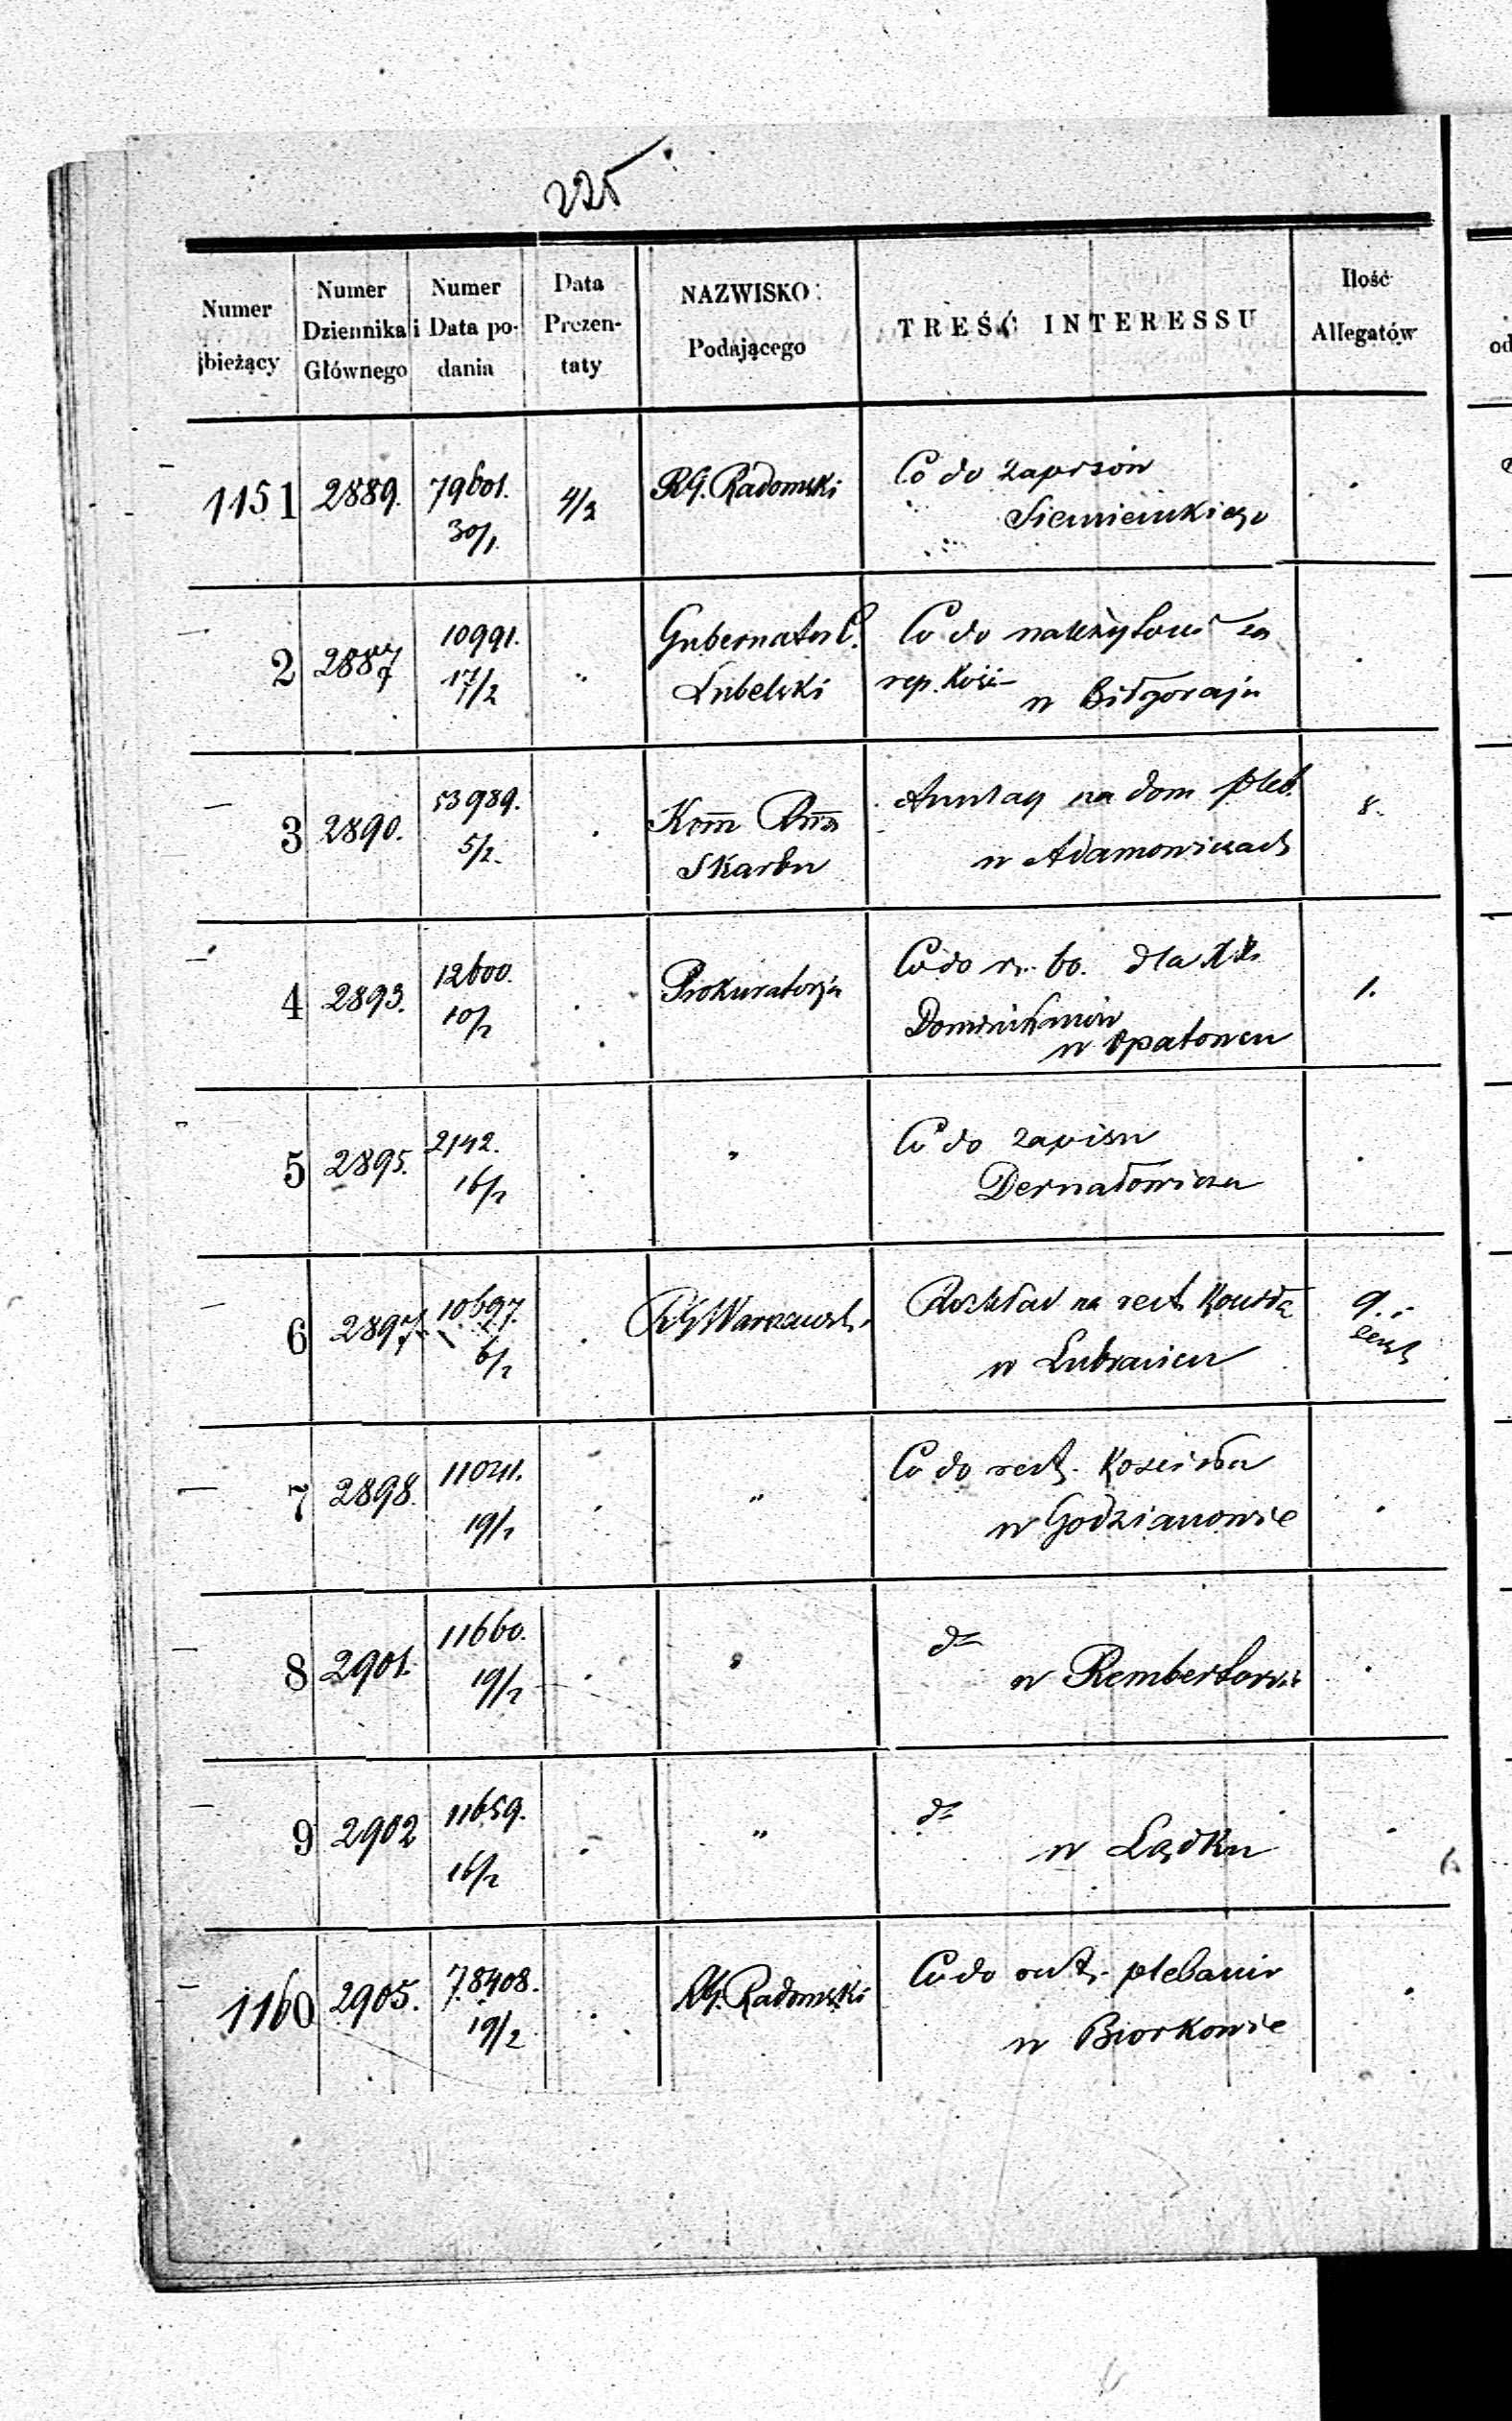 225
Numer bieżący
Numer Dziennika Głównego
Numer i Data podania
Data Prezentaty
NAZWISKO Podającego
TREŚĆ INTERESSU
Ilość Allegatów
1151 2889. 79601. 30/1 4/3 RG. Radomski Co do zapisów
Siemieńskiego
2 2887 10991. 17/2 " Gubernator C. Lubelski Co do należytości za
rep. kość w Biłgoraju
3 2890. 53989. 5/2. Kom Skarbu na dom pleb. 8.
w Adamowicach
4 2893. 12600. 10/2 Prokuratorja Co do r. bo. dla XX. 1.
Dominikanów
w Opatowcu
5 2895. 2142. 16/2 " Co do zapisu
Dernałowicza
6 2897. 10697. 6/2 RG Warszawsk. Rozkład na rest. Kościoła 9.
w Lubrańcu
7 2898. 11041. 19/2 " Co do rest. Kościoła
w Godzianowie
8 2901. 11660. 19/2 " do
w Rembertowie
9 2902 11659. 16/2 " do
w Lądku
1160 2905. 78408. 19/2 RG. Radomski Co do rest. plebanii
w Biorkowie